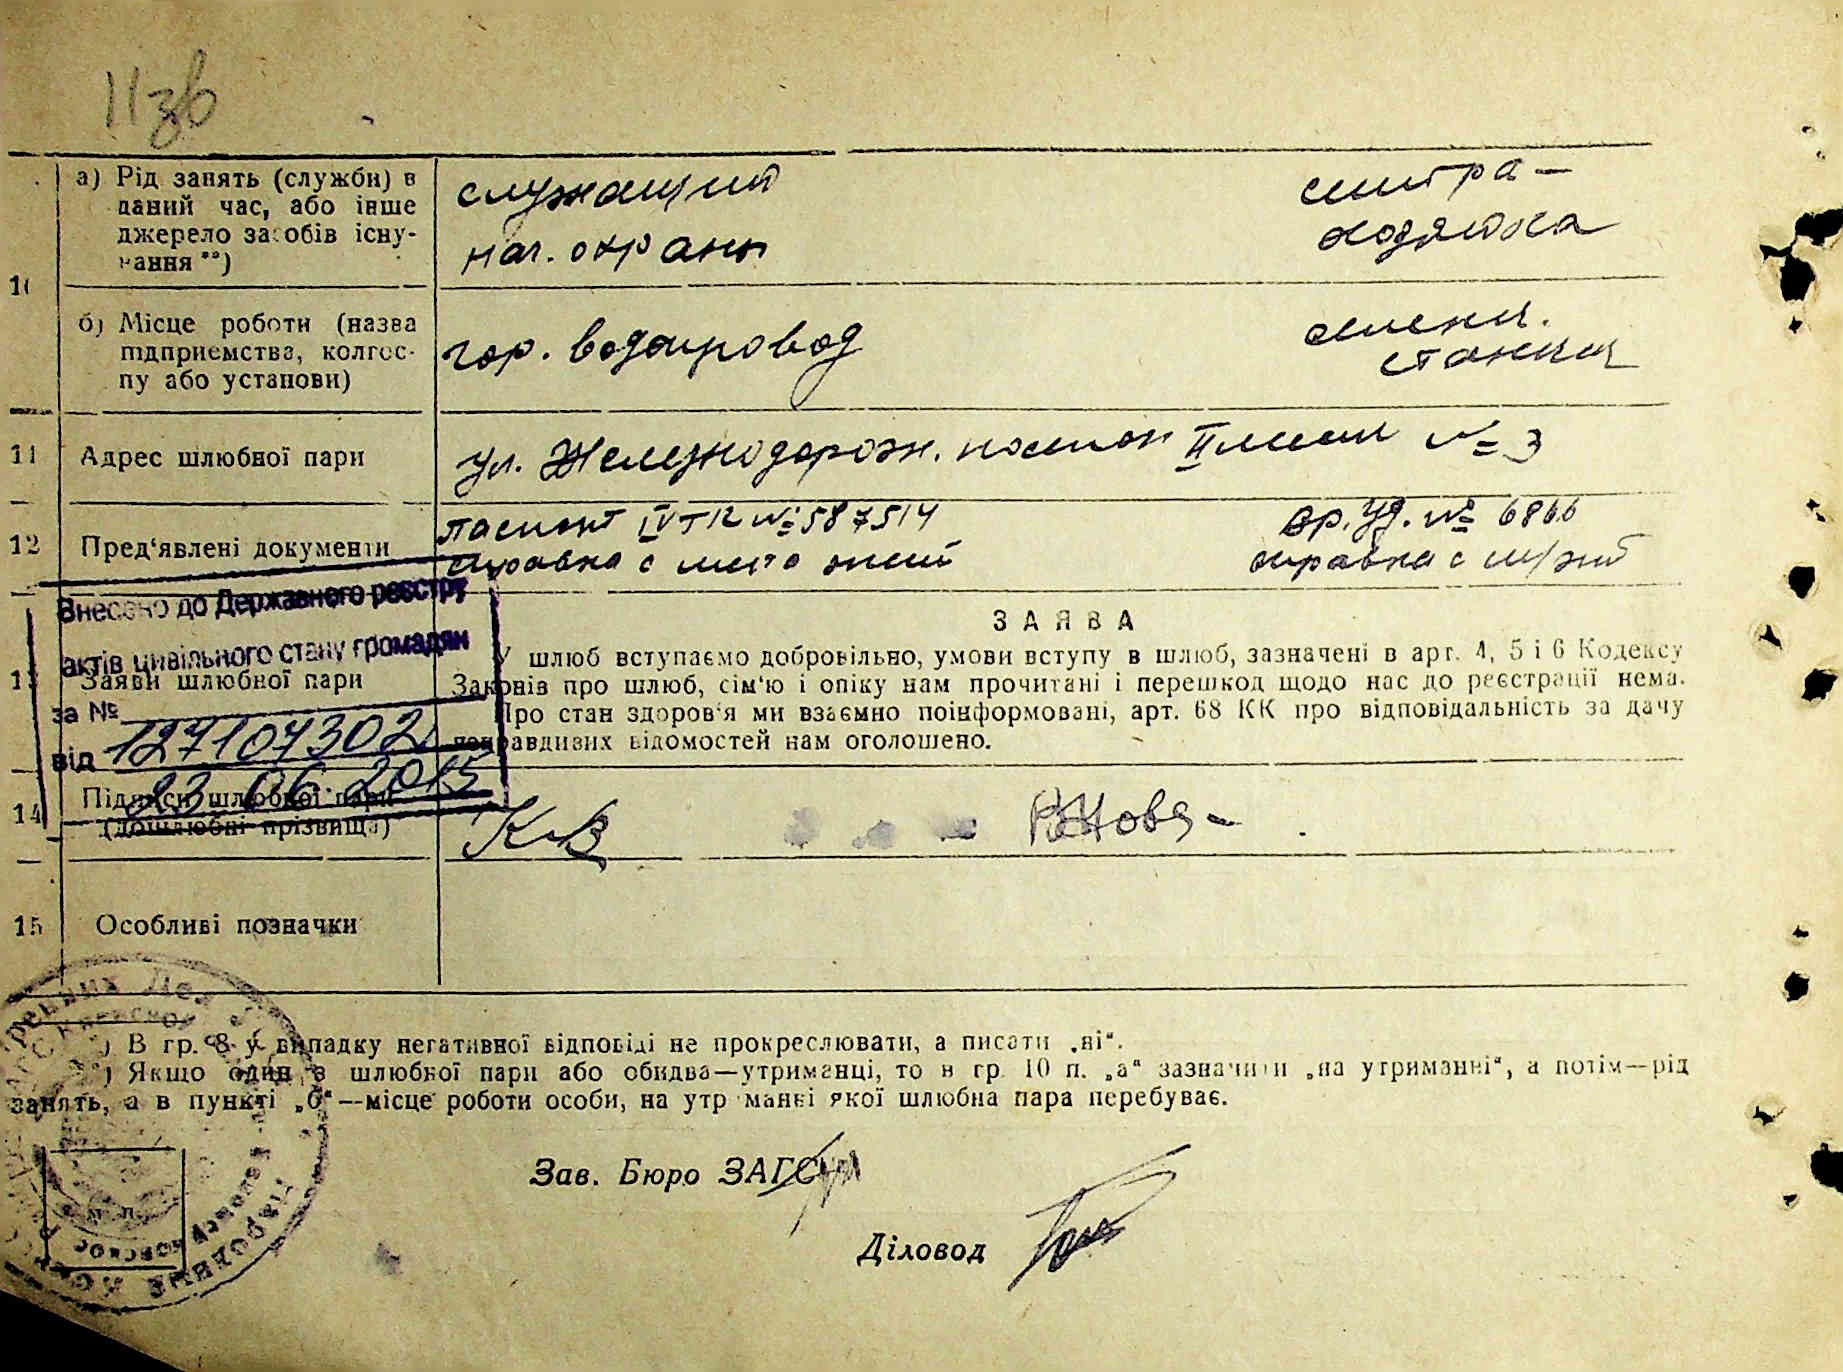 113б
а) Рід занять (служби) в
даний час, або інше
джерело засобів існу-
вання **)
служащий
нач. охраны
10
б) Місце роботи (назва
підприємства, колгос-
пу або установи)
гор. водопровод
станции
11 Адрес шлюбної пари
ул. Железнодорожн. № 3
12 Пред'явлені документи
паспорт № 587514
справка с места жит
вр. уд. № 6866
справка с м/жит
Внесено до Державного реєстру
актів цивільного стану громадян
за № 127104302
від 23 06 2015
13 Заяви шлюбної пари
ЗАЯВА
У шлюб вступаємо добровільно, умови вступу в шлюб, зазначені в арт. 4, 5 і 6 Кодексу
Законів про шлюб, сім'ю і опіку нам прочитані і перешкод щодо нас до реєстрації нема.
Про стан здоров'я ми взаємно поінформовані, арт. 68 КК про відповідальність за дачу
неправдивих відомостей нам оголошено.
14 Підписи шлюбної пари
(дошлюбні прізвища)
15 Особливі позначки
*) В гр. 8 у випадку негативної відповіді не прокреслювати, а писати „ні“.
**) Якщо один з шлюбної пари або обидва—утриманці, то в гр. 10 п. „а“ зазначити „на утриманні“, а потім—рід
занять, а в пункті „б“—місце роботи особи, на утриманні якої шлюбна пара перебуває.
Зав. Бюро ЗАГС
Діловод